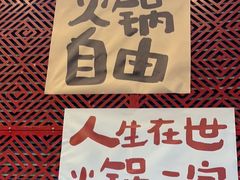 火锅
自由
人生在世
火锅二字